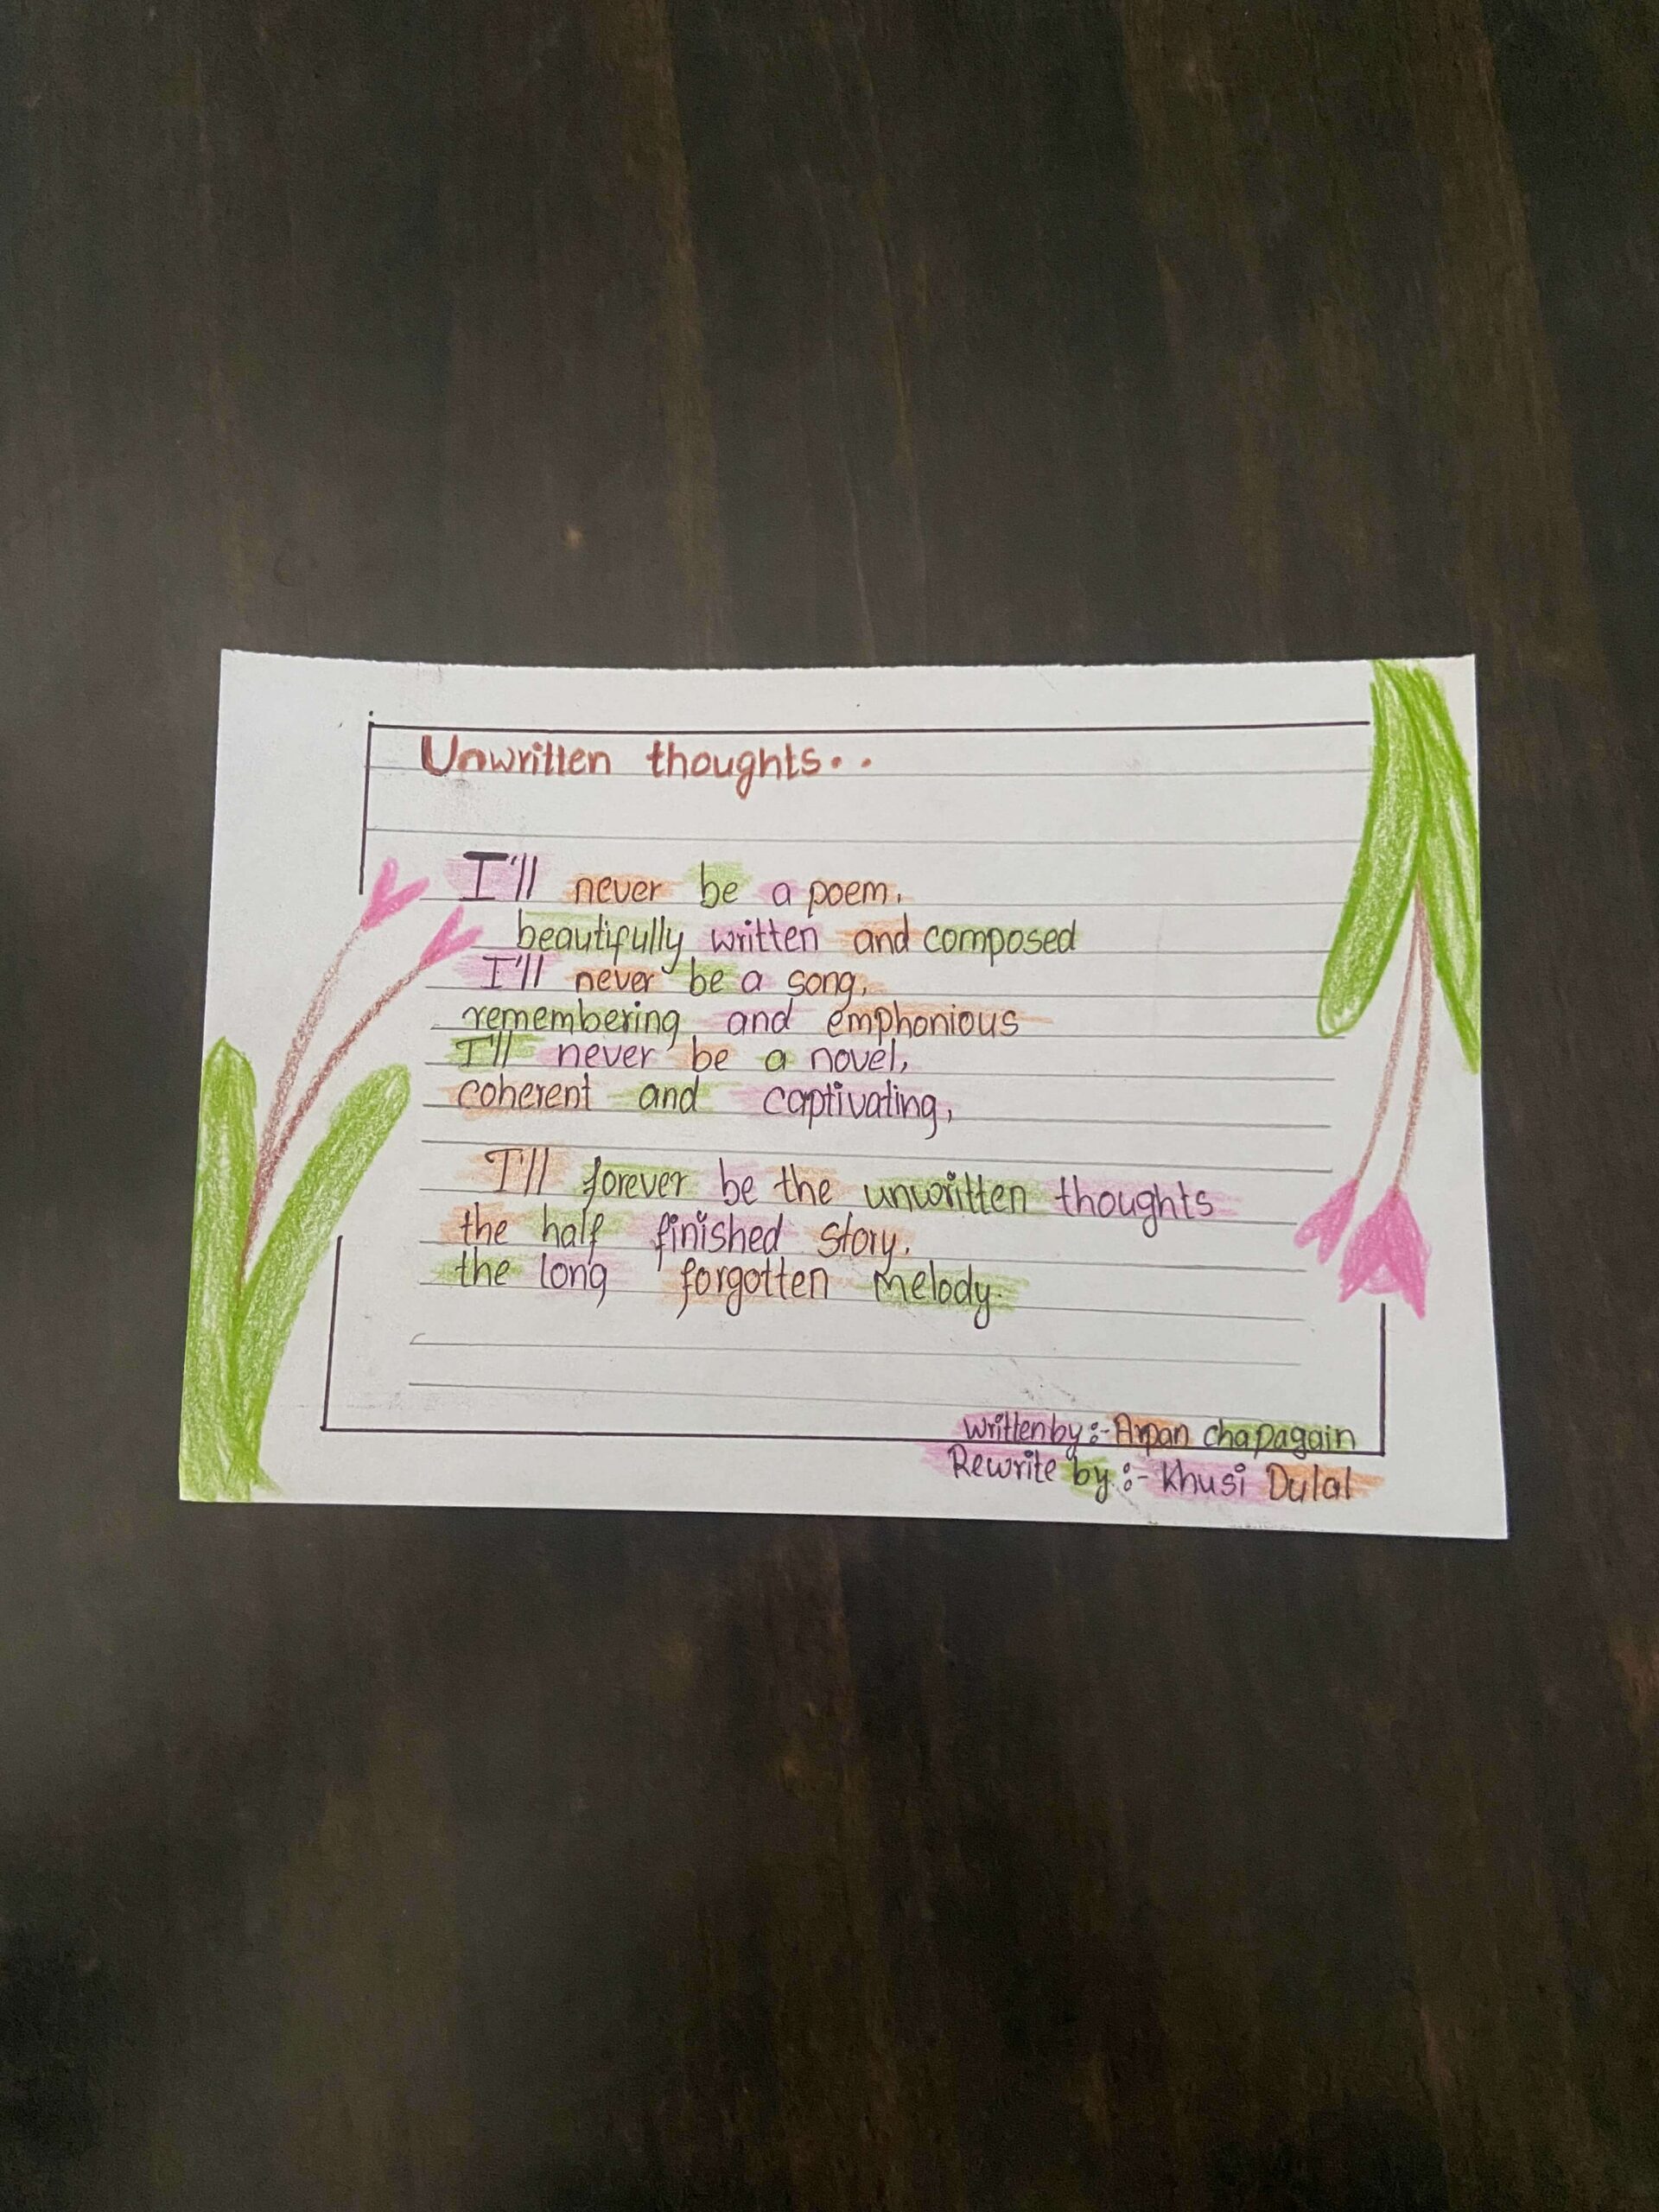 Unwritten thoughts..
I'll never be a poem,
beautifully written and composed
I'll never be a song,
remembering and emphonious
I'll never be a novel,
coherent and captivating,
I'll forever be the unwritten thoughts
the half finished story,
the long forgotten melody.
Written by:- Arpan chapagain
Rewrite by:- Khusi Dulal